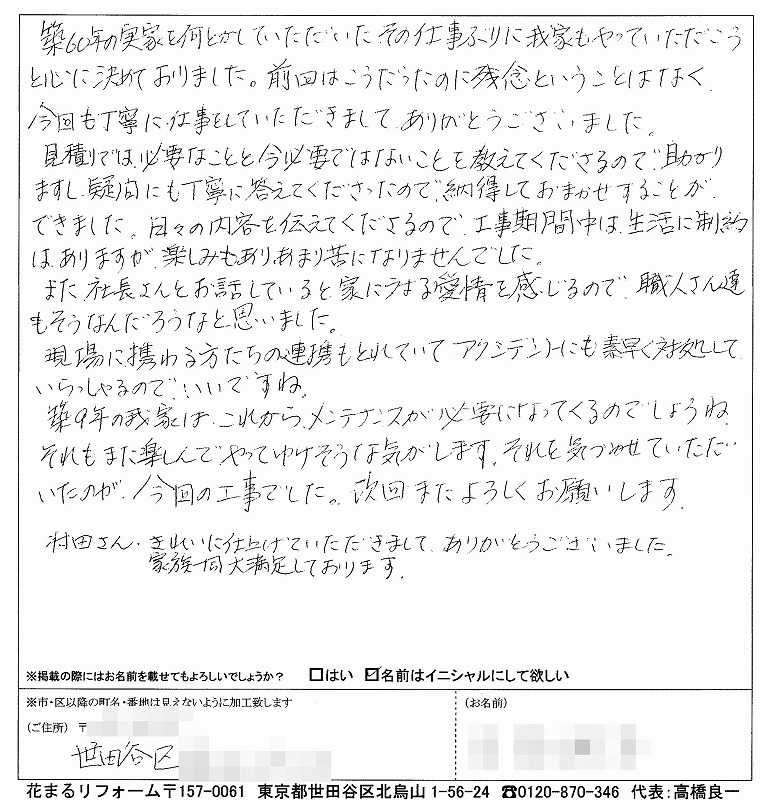 築60年の実家を何とかしていただいたその仕事ぶりに我家もやっていただこう
と心に決めておりました。前回はこうだったのに残念ということはなく、
今回も丁寧に仕事をしていただきまして、ありがとうございました。
見積りでは、必要なことと今必要ではないことを教えてくださるので、助かり
ますし、疑問にも丁寧に答えてくださったので、納得しておまかせすることが
できました。日々の内容を伝えてくださるので、工事期間中は、生活に制約
は、ありますが、楽しみもありあまり苦になりませんでした。
また社長さんとお話していると家に対する愛情を感じるので、職人さん達
もそうなんだろうなと思いました。
現場に携わる方たちの連携もとれていてアクシデントにも素早く対処して
いらっしゃるので、いいですね。
築9年の我家は、これから、メンテナンスが必要になってくるのでしょうね、
それもまた楽しんでやってゆけそうな気がします。それを気づかせていただ
いたのが、今回の工事でした。次回またよろしくお願いします。
村田さん・きれいに仕上げていただきまして、ありがとうございました。
家族一同大満足しております。
※掲載の際にはお名前を載せてもよろしいでしょうか? □はい ☑名前はイニシャルにして欲しい
※市・区以降の町名・番地は見えないように加工致します
(お名前)
(ご住所) 〒
世田谷区
花まるリフォーム〒157-0061 東京都世田谷区北烏山 1-56-24 ☎0120-870-346 代表:高橋良一